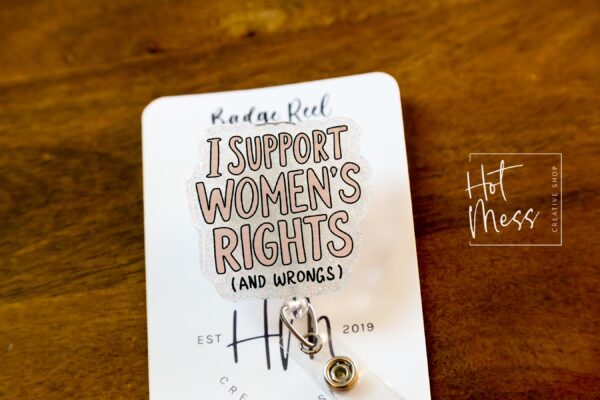 Badge Reel
I SUPPORT
WOMEN'S
RIGHTS
(AND WRONGS)
EST
Hm
2019
Hot
Mess
CREATIVE SHOP